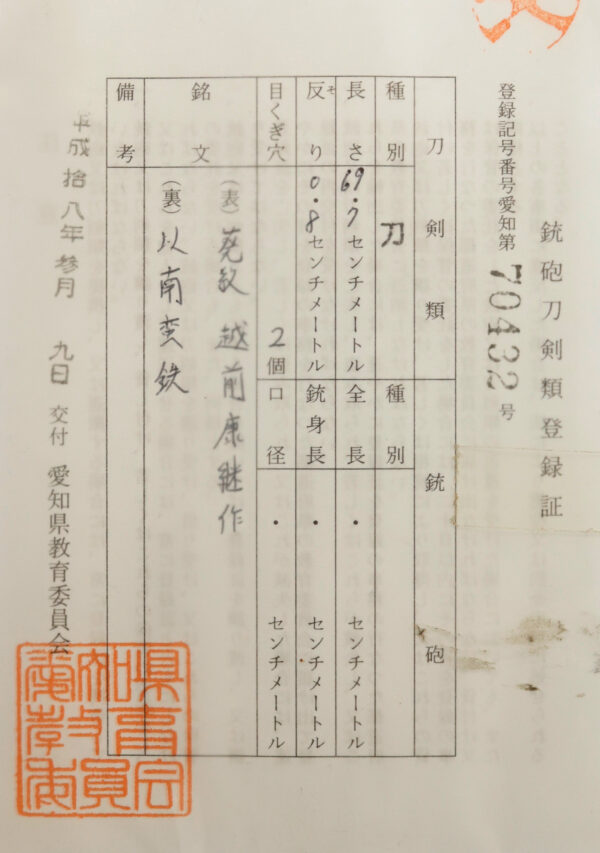 銃砲刀剣類登録証
登録記号番号愛知第70432号
刀剣類
銃砲
種別 刀
種別
長さ 69.7センチメートル
全長 ・ センチメートル
反り 0.8センチメートル
そ
銃身長 ・ センチメートル
目くぎ穴 2個
口径 ・ センチメートル
銘文
(表) 葵紋 越前康継作
(裏) 以南蛮鉄
備考
平成拾八年参月 九日 交付 愛知県教育委員会
愛知県教育委員会